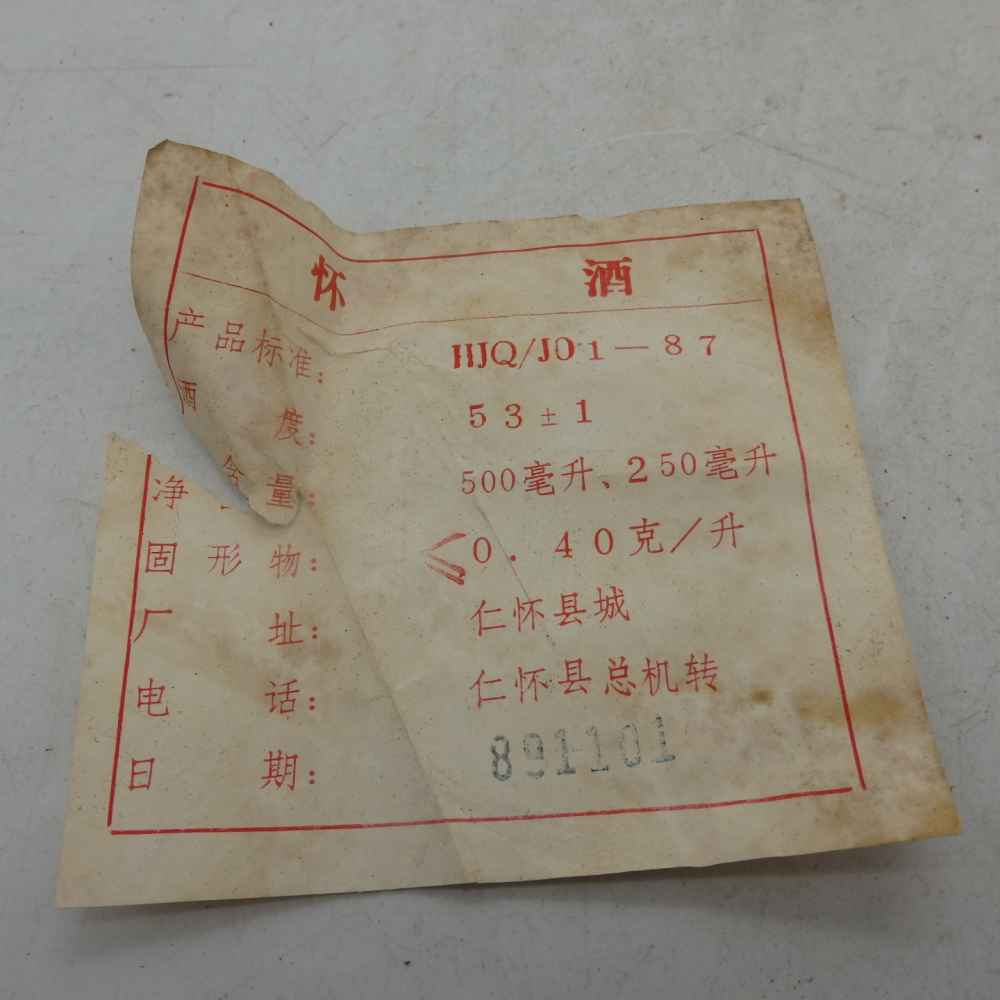 怀 酒
产品标准: HJQ/J01—87
酒 度: 53±1
净含量: 500毫升、250毫升
固形物: ≤0.40克/升
厂 址: 仁怀县城
电 话: 仁怀县总机转
日 期: 891101